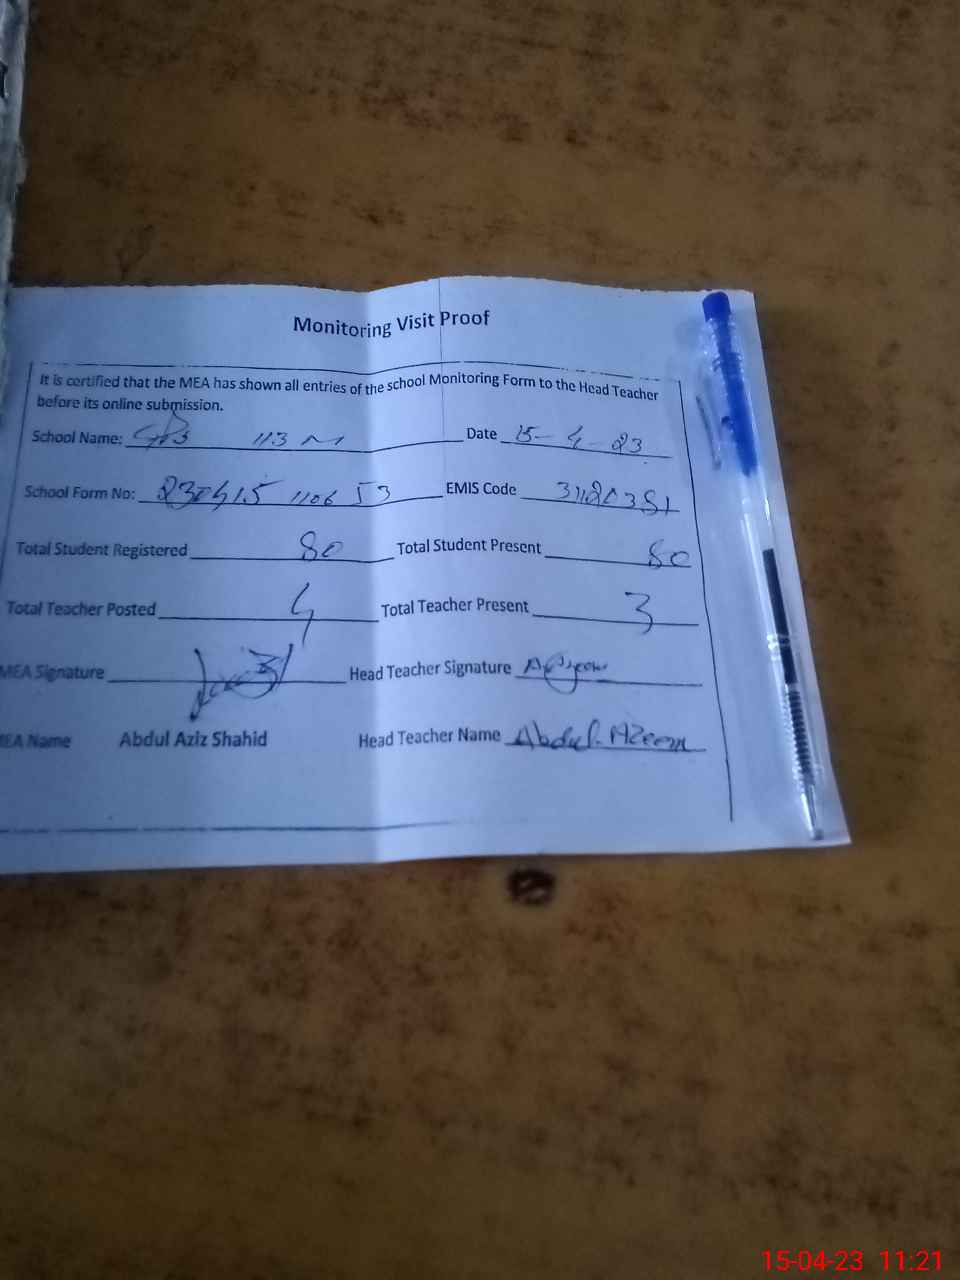 Monitoring Visit Proof
It is certified that the MEA has shown all entries of the school Monitoring Form to the Head Teacher
before its online submission.
School Name: GPS 113 M Date 15-4-23
School Form No: 230415 110653 EMIS Code
Total Student Registered 80 Total Student Present 80
Total Teacher Posted 4 Total Teacher Present 3
MEA Signature Head Teacher Signature
MEA Name Abdul Aziz Shahid Head Teacher Name Abdul Azeem
15-04-23 11:21